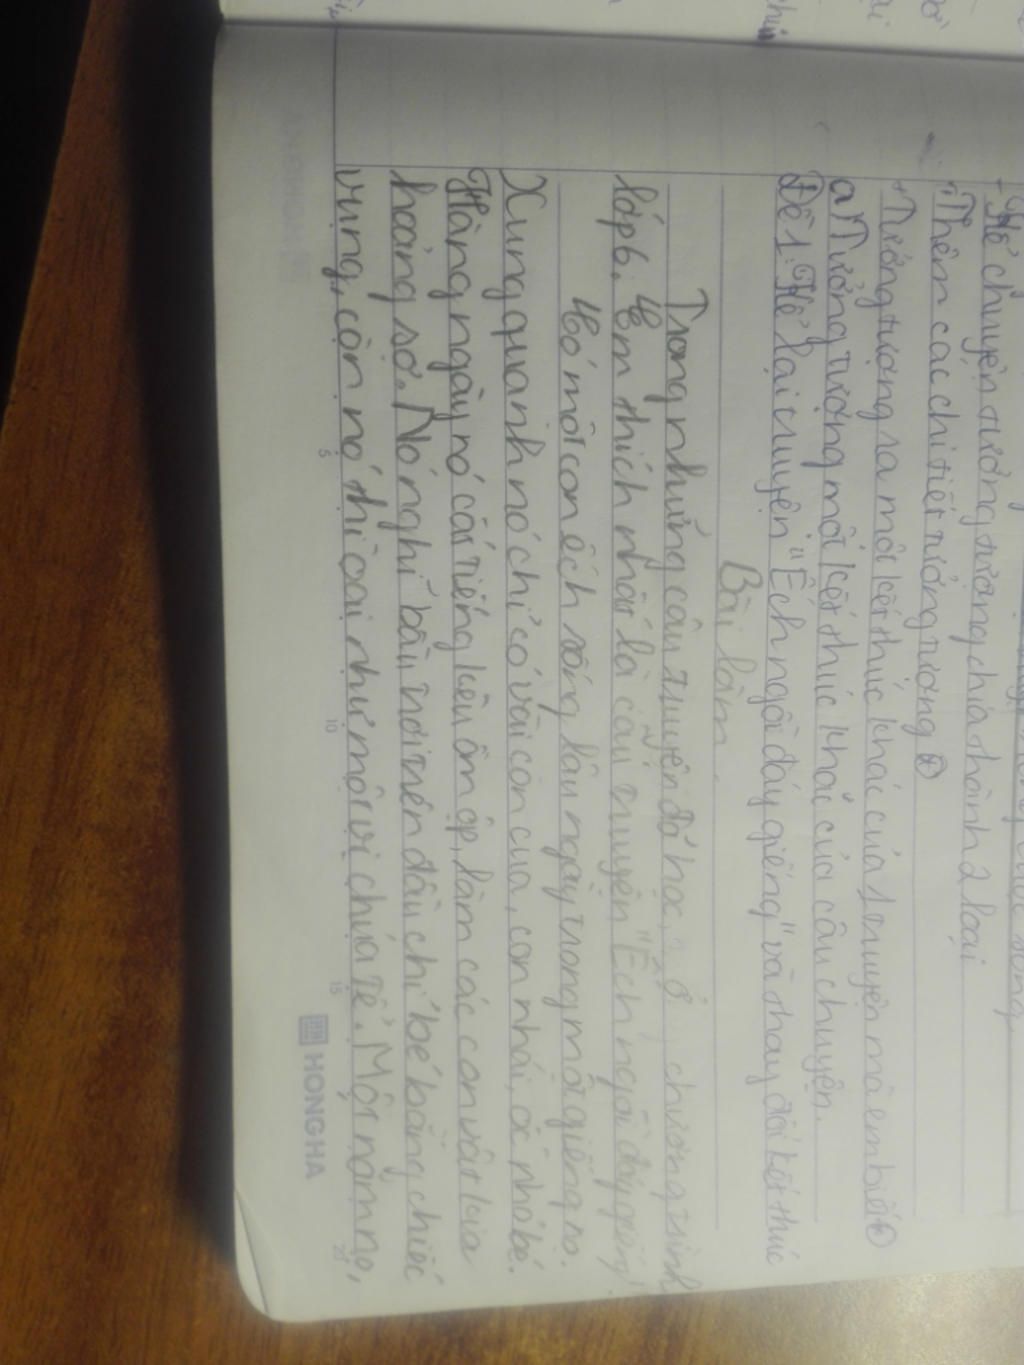 - Kể chuyện tưởng tượng chia thành 2 loại
+ Thêm các chi tiết tưởng tượng
+ Tưởng tượng ra một kết thúc khác của 1 truyện mà em biết
a) Tưởng tượng một kết thúc khác của câu chuyện.
Đề 1: Kể lại truyện "Ếch ngồi đáy giếng" và thay đổi kết thúc
Bài làm
Trong những câu truyện đã học, ở chương trình
lớp 6. Em thích nhất là câu truyện "Ếch ngồi đáy giếng"
Có một con ếch sống lâu ngày trong một giếng nọ.
Xung quanh nó chỉ có vài con cua, con nhái, ốc nhỏ bé.
Hàng ngày nó cất tiếng kêu ồm ộp, làm các con vật kia
hoảng sợ. Nó nghĩ bầu trời trên đầu chỉ bé bằng chiếc
vung, còn nó thì oai như một vị chúa tể. Một năm nọ,
HONG HA
5
10
15
20